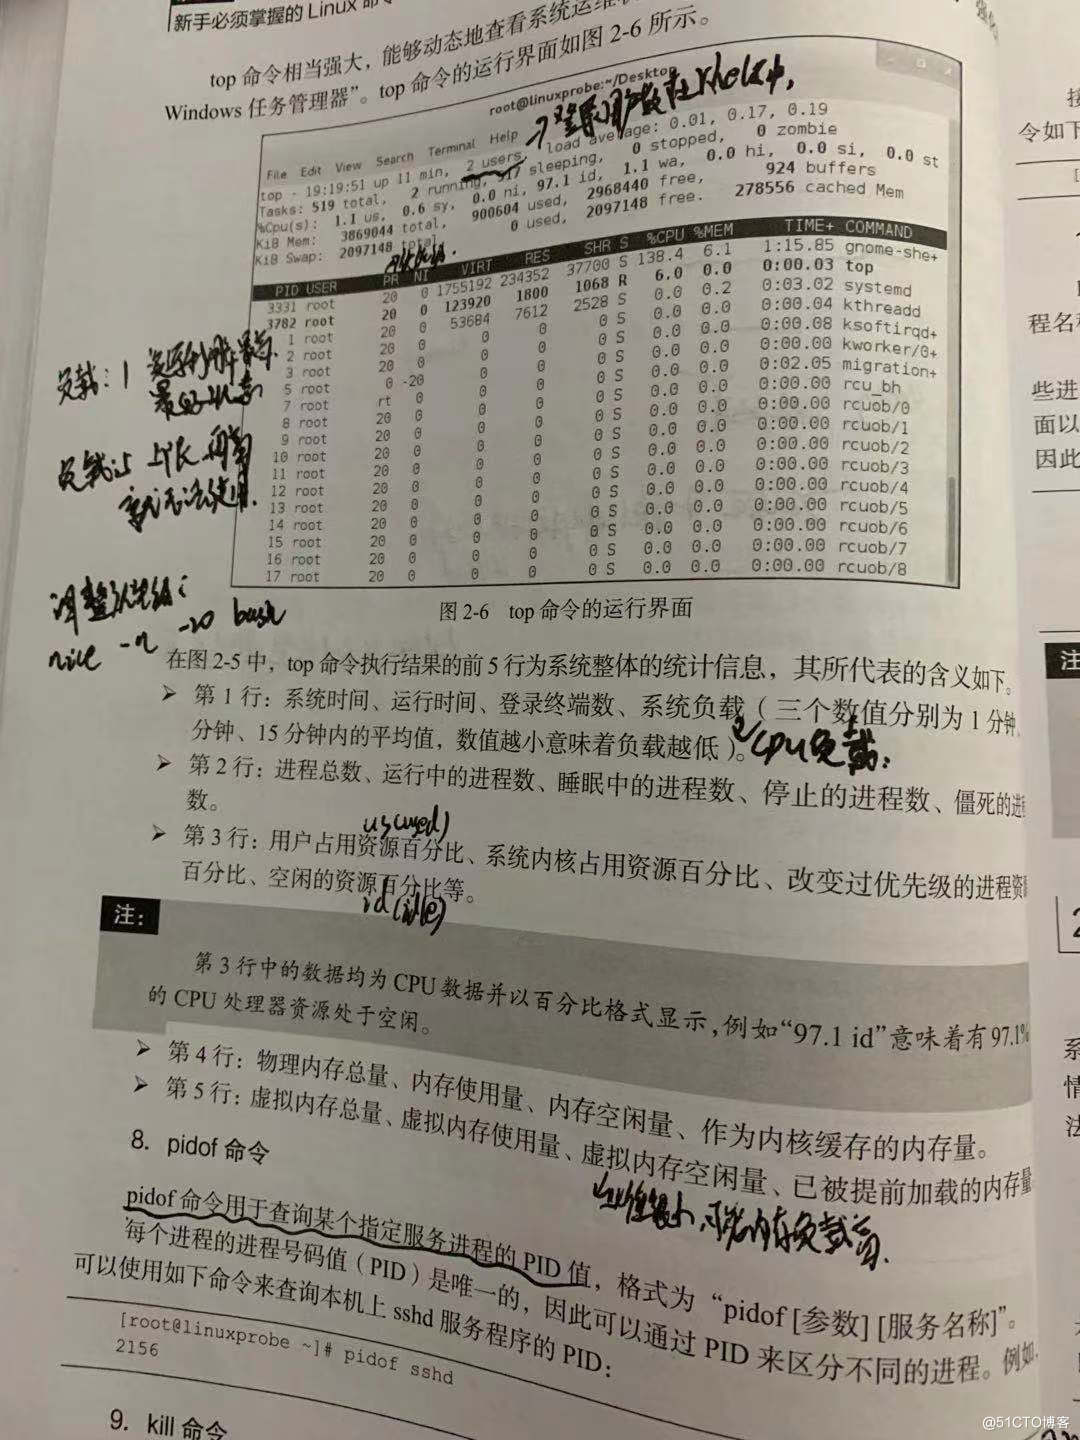 新手必须掌握的 Linux 命令
top 命令相当强大，能够动态地查看系统运维状
Windows 任务管理器”。top 命令的运行界面如图 2-6 所示。
root@linuxprobe:~/Desktop
File Edit View Search Terminal Help
top - 19:19:51 up 11 min, 2 users, load average: 0.01, 0.17, 0.19
Tasks: 519 total, 2 running, 517 sleeping, 0 stopped, 0 zombie
%Cpu(s): 1.1 us, 0.6 sy, 0.0 ni, 97.1 id, 1.1 wa, 0.0 hi, 0.0 si, 0.0 st
KiB Mem: 3869044 total, 900604 used, 2968440 free, 924 buffers
KiB Swap: 2097148 total, 0 used, 2097148 free. 278556 cached Mem
PID USER PR NI VIRT RES SHR S %CPU %MEM TIME+ COMMAND
3331 root 20 0 1755192 234352 37700 S 138.4 6.1 1:15.85 gnome-she+
3782 root 20 0 123920 1800 1068 R 6.0 0.0 0:00.03 top
1 root 20 0 53684 7612 2528 S 0.0 0.2 0:03.02 systemd
2 root 20 0 0 0 0 S 0.0 0.0 0:00.04 kthreadd
3 root 20 0 0 0 0 S 0.0 0.0 0:00.08 ksoftirqd+
5 root 0 -20 0 0 0 S 0.0 0.0 0:00.00 kworker/0+
7 root rt 0 0 0 0 S 0.0 0.0 0:02.05 migration+
8 root 20 0 0 0 0 S 0.0 0.0 0:00.00 rcu_bh
9 root 20 0 0 0 0 S 0.0 0.0 0:00.00 rcuob/0
10 root 20 0 0 0 0 S 0.0 0.0 0:00.00 rcuob/1
11 root 20 0 0 0 0 S 0.0 0.0 0:00.00 rcuob/2
12 root 20 0 0 0 0 S 0.0 0.0 0:00.00 rcuob/3
13 root 20 0 0 0 0 S 0.0 0.0 0:00.00 rcuob/4
14 root 20 0 0 0 0 S 0.0 0.0 0:00.00 rcuob/5
15 root 20 0 0 0 0 S 0.0 0.0 0:00.00 rcuob/6
16 root 20 0 0 0 0 S 0.0 0.0 0:00.00 rcuob/7
17 root 20 0 0 0 0 S 0.0 0.0 0:00.00 rcuob/8
负载：1
最好状态
调整优先级：
nice -n -20 bash
图 2-6 top 命令的运行界面
在图 2-5 中，top 命令执行结果的前 5 行为系统整体的统计信息，其所代表的含义如下。
➢ 第 1 行：系统时间、运行时间、登录终端数、系统负载（三个数值分别为 1 分钟、
分钟、15 分钟内的平均值，数值越小意味着负载越低）。
CPU负载：
➢ 第 2 行：进程总数、运行中的进程数、睡眠中的进程数、停止的进程数、僵死的进
数。
us(used)
➢ 第 3 行：用户占用资源百分比、系统内核占用资源百分比、改变过优先级的进程资
百分比、空闲的资源百分比等。
id(idle)
注：
第 3 行中的数据均为 CPU 数据并以百分比格式显示，例如“97.1 id”意味着有 97.1%
的 CPU 处理器资源处于空闲。
➢ 第 4 行：物理内存总量、内存使用量、内存空闲量、作为内核缓存的内存量。
➢ 第 5 行：虚拟内存总量、虚拟内存使用量、虚拟内存空闲量、已被提前加载的内存量
8. pidof 命令
pidof 命令用于查询某个指定服务进程的 PID 值，格式为“pidof [参数] [服务名称]”。
每个进程的进程号码值（PID）是唯一的，因此可以通过 PID 来区分不同的进程。例如，
可以使用如下命令来查询本机上 sshd 服务程序的 PID：
[root@linuxprobe ~]# pidof sshd
2156
9. kill 命令
令如下
程名称
些进
面以
因此
注
@51CTO博客